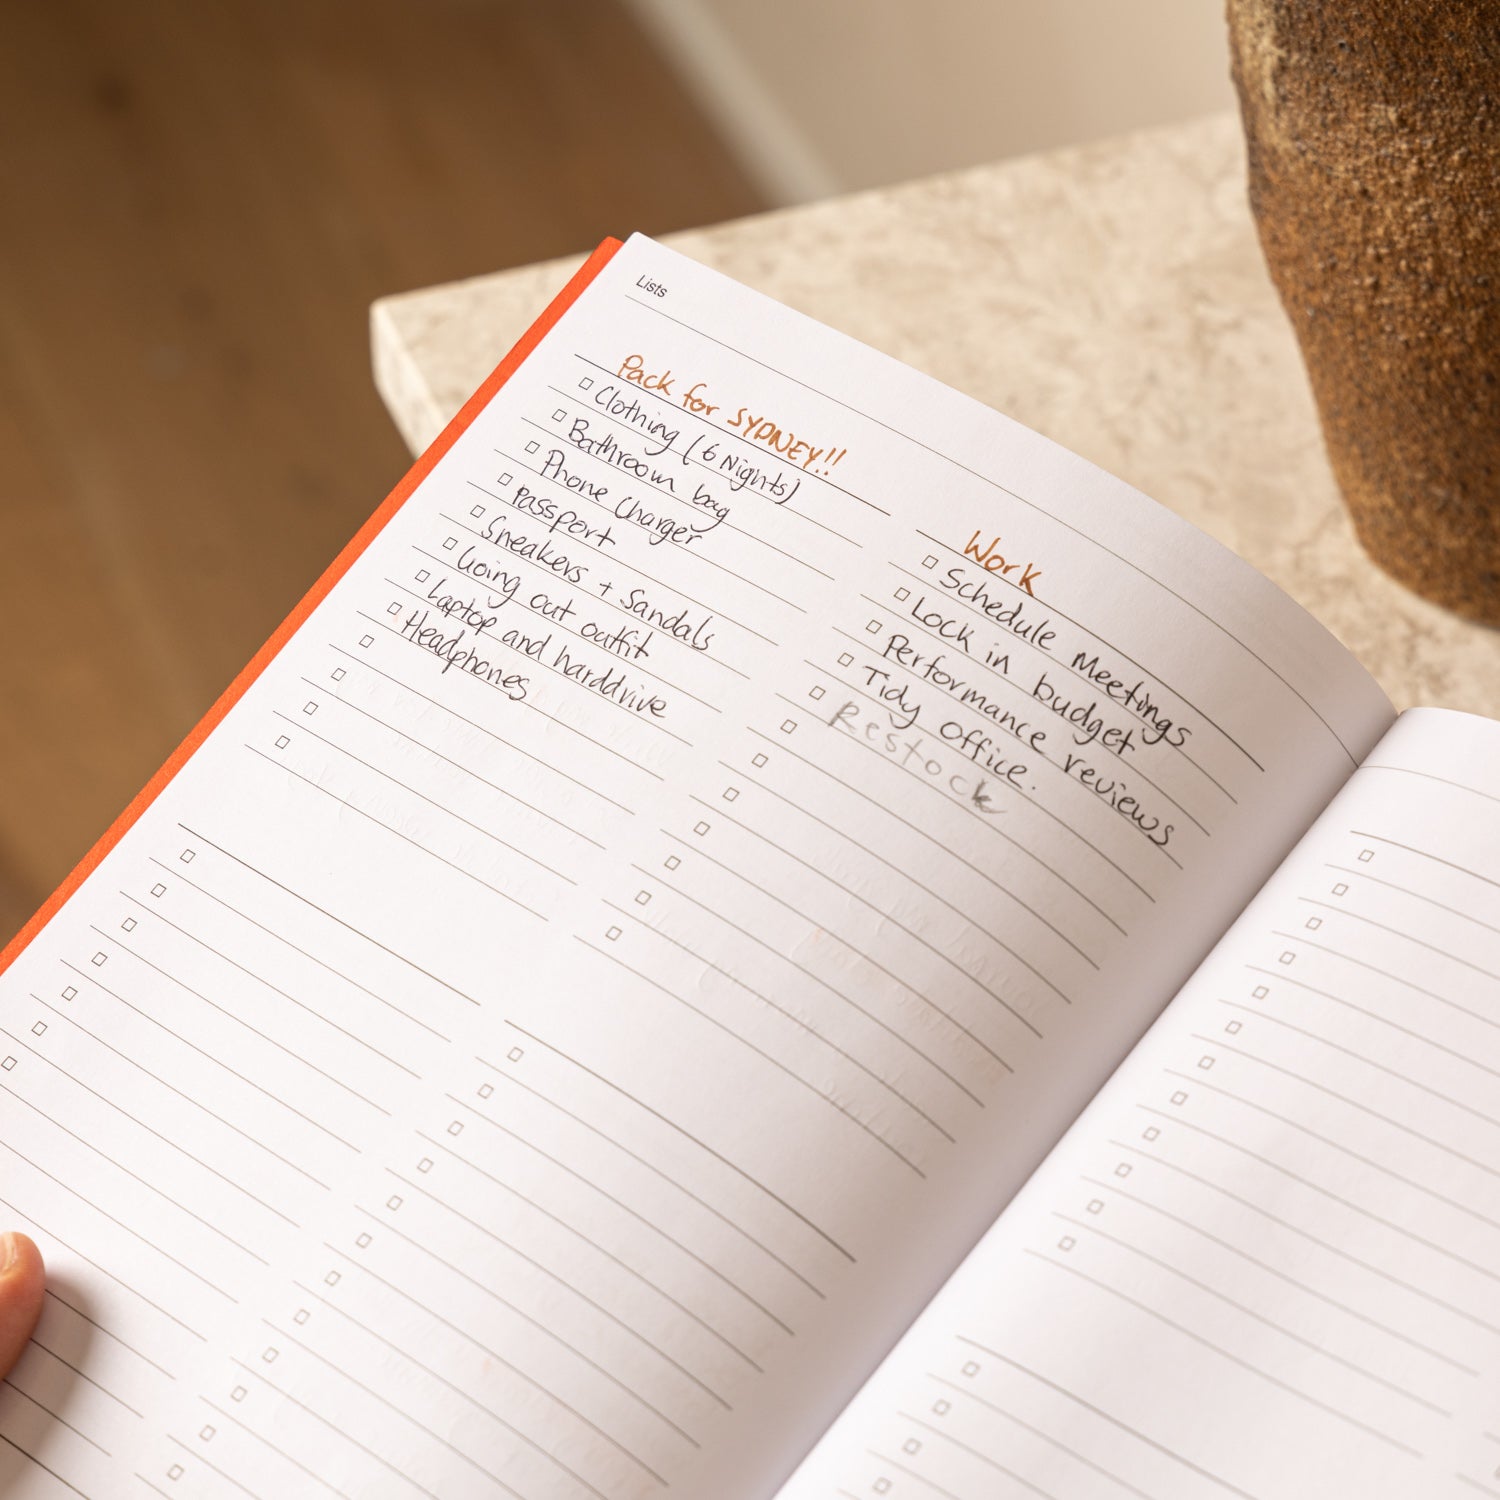 Lists
Pack for SYDNEY!!
Clothing (6 Nights)
Bathroom bag
Phone Charger
Passport
Sneakers + Sandals
Going out outfit
Laptop and harddrive
Headphones
Work
Schedule Meetings
Lock in budget
Performance reviews
Tidy office.
Restock